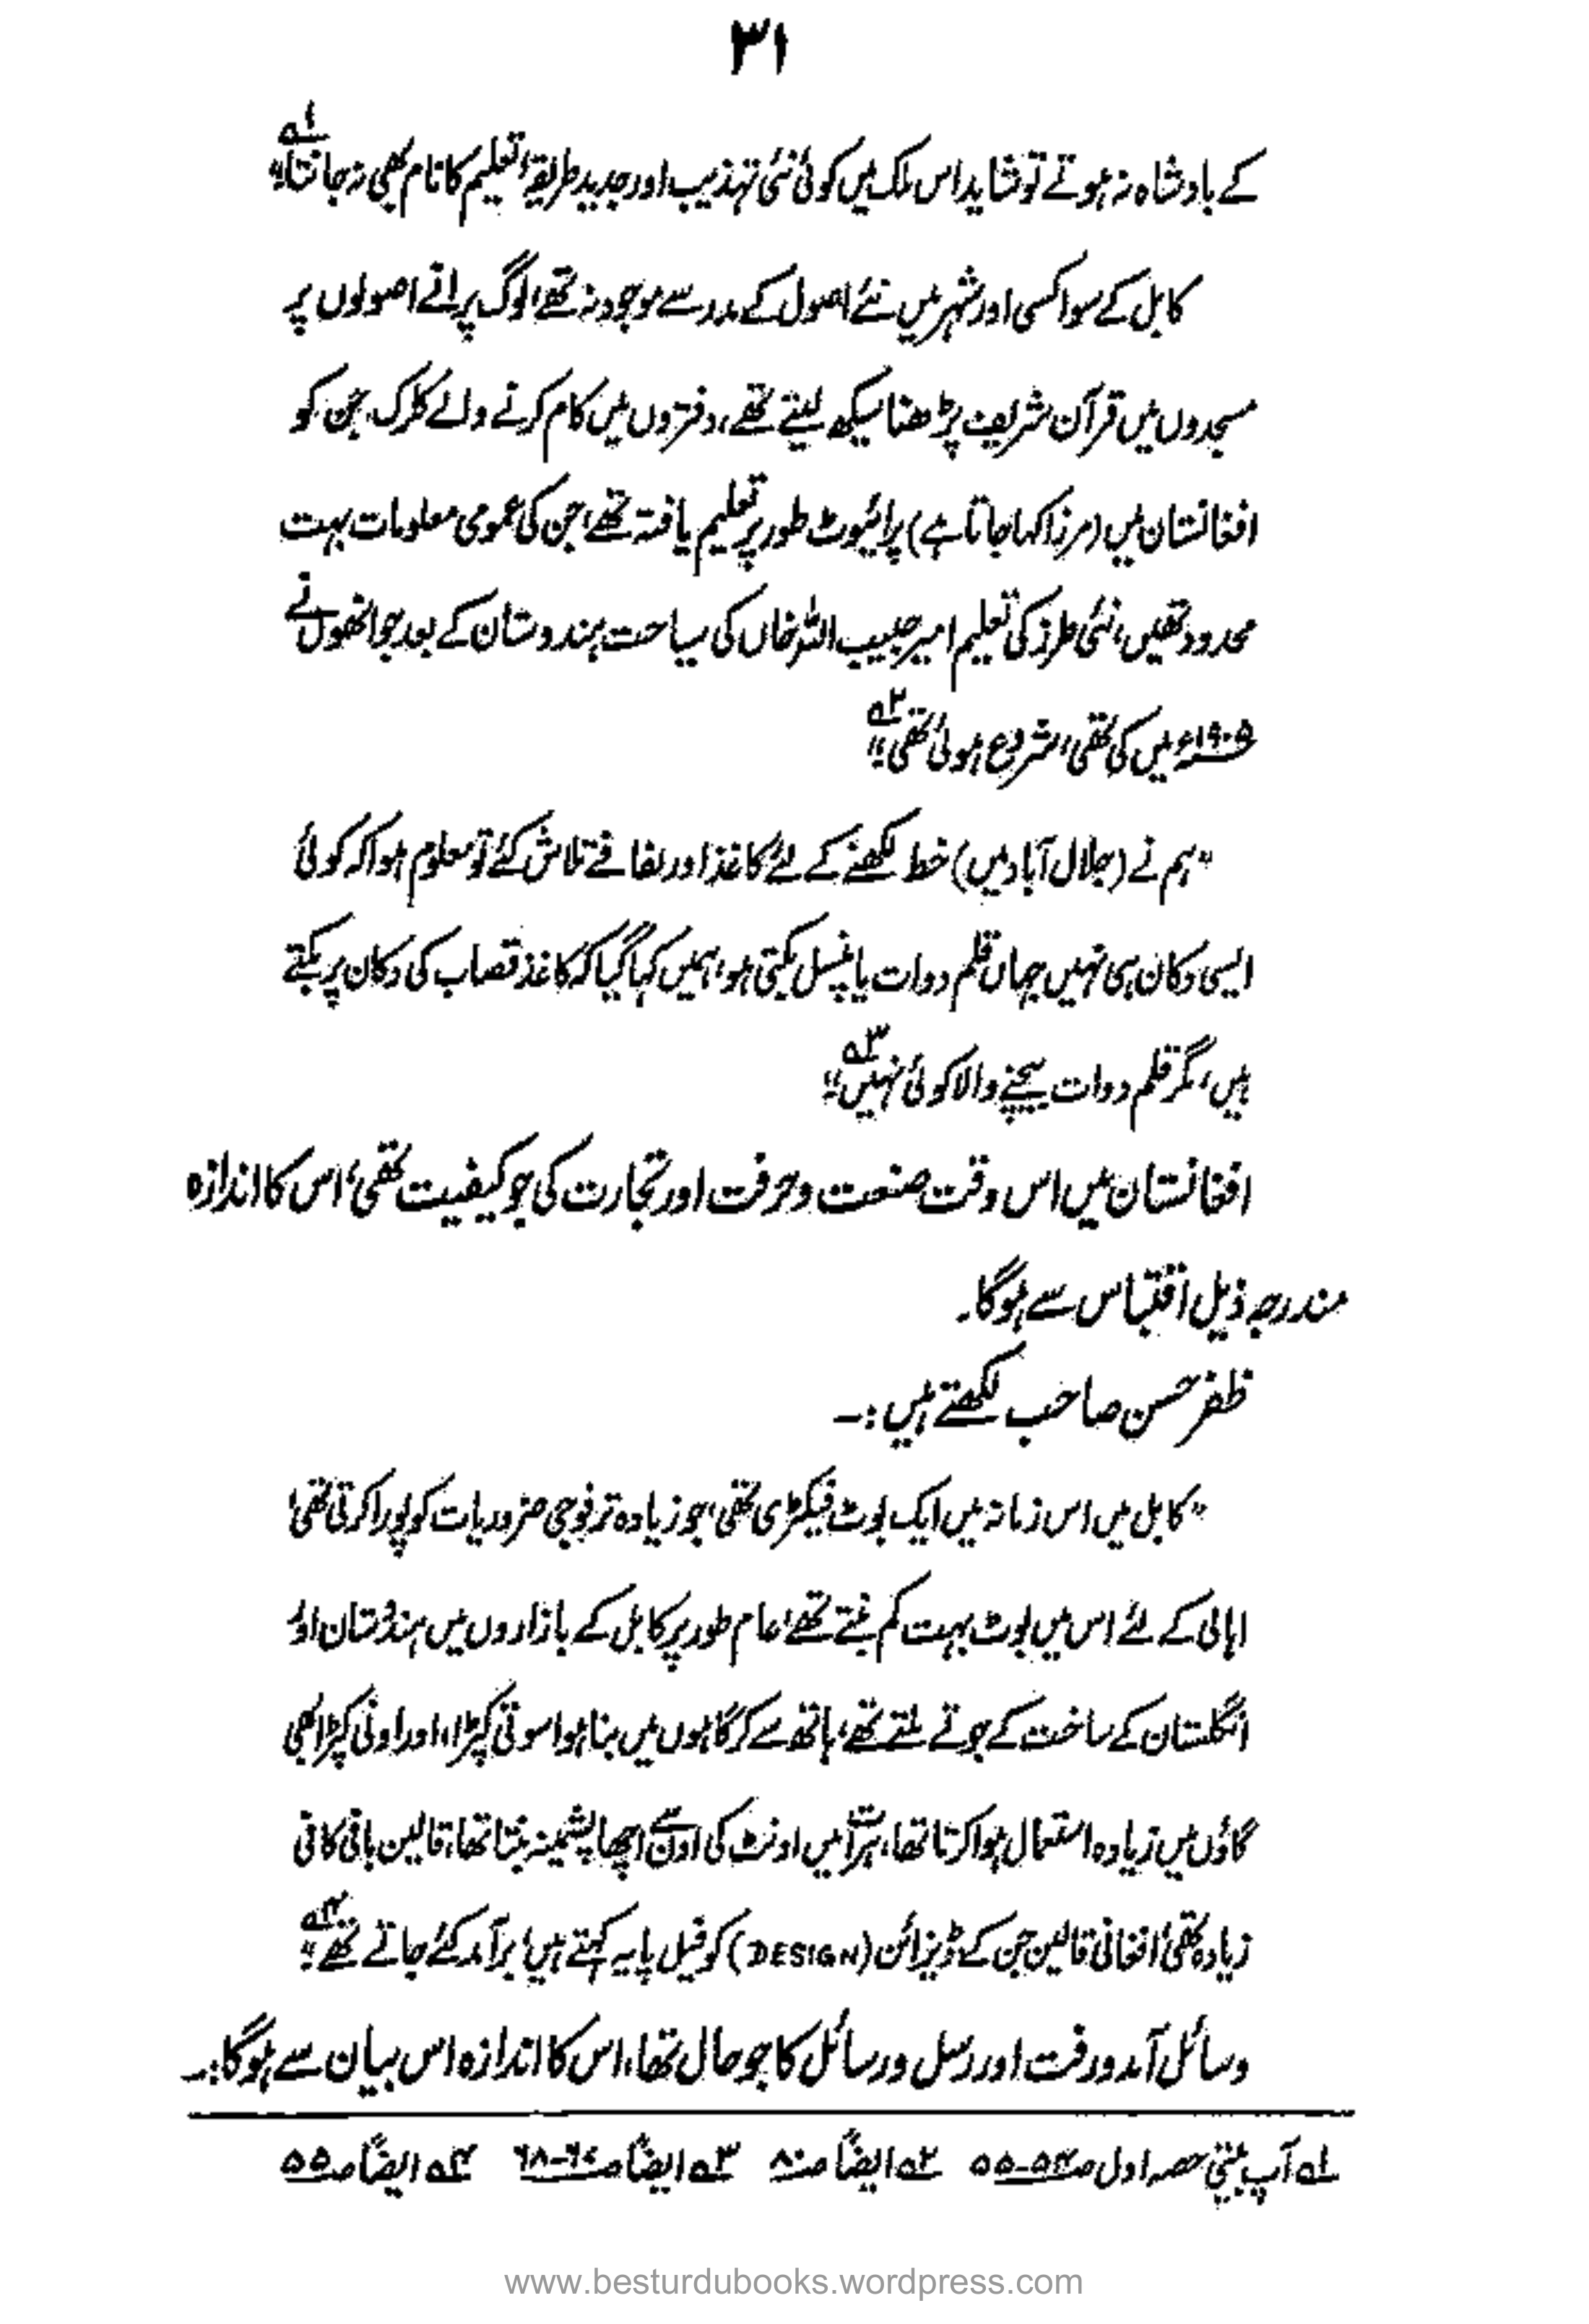 ۳۱
کے بادشاہ نہ ہوتے تو شاید اس ملک میں کوئی نئی تہذیب اور جدید طریقۂ تعلیم کا نام بھی نہ جانتا" ۱ھ
کابل کے سوا کسی اور شہر میں نئے اصول کے مدرسے موجود نہ تھے، لوگ پرانے اصولوں پر
مسجدوں میں قرآن شریف پڑھنا سیکھ لیتے تھے، دفتروں میں کام کرنے والے کلرک جن کو
افغانستان میں (مرزا کہا جاتا ہے) پرائیوٹ طور پر تعلیم یافتہ تھے، جن کی عمومی معلومات بہت
محدود تھیں، نئی طرز کی تعلیم امیر حبیب اللہ خاں کی سیاحت ہندوستان کے بعد جو انھوں نے
۱۹۰۵ء میں کی تھی، شروع ہوئی تھی" ۲ھ
"ہم نے (جلال آباد میں) خط لکھنے کے لئے کاغذ اور لفافے تلاش کئے تو معلوم ہوا کہ کوئی
ایسی دکان ہی نہیں جہاں قلم دوات یا پنسل بکتی ہو، ہمیں کہا گیا کہ کاغذ قصاب کی دکان پر بکتے
ہیں، مگر قلم دوات بیچنے والا کوئی نہیں" ۳ھ
افغانستان میں اس وقت صنعت و حرفت اور تجارت کی جو کیفیت تھی، اس کا اندازہ
مندرجہ ذیل اقتباس سے ہوگا۔
ظفر حسن صاحب لکھتے ہیں:۔
"کابل میں اس زمانہ میں ایک بوٹ فیکٹری تھی، جو زیادہ تر فوجی ضروریات کو پورا کرتی تھی،
اہالی کے لئے اس میں بوٹ بہت کم بنتے تھے، عام طور پر کابل کے بازاروں میں ہندوستان اور
انگلستان کے ساخت کے جوتے ملتے تھے، ہاتھ سے کرگاہوں میں بنا ہوا سوتی کپڑا، اور اونی کپڑا بھی
گاؤں میں زیادہ استعمال ہوا کرتا تھا، ہرات میں اونٹ کی اون سے اچھا پشمینہ بنتا تھا، قالین بافی کافی
زیادہ تھی، افغانی قالین جن کے ڈیزائن (DESIGN) کو فیل پایہ کہتے ہیں، برآمد کئے جاتے تھے" ۴ھ
وسائل آمد و رفت اور رسل و رسائل کا جو حال تھا، اس کا اندازہ اس بیان سے ہوگا:۔
۱ھ آپ بیتی حصہ اول ص۵۴-۵۵ ۲ھ ایضاً ص۸۰ ۳ھ ایضاً ص۶۷-۶۸ ۴ھ ایضاً ص۵۵
www.besturdubooks.wordpress.com